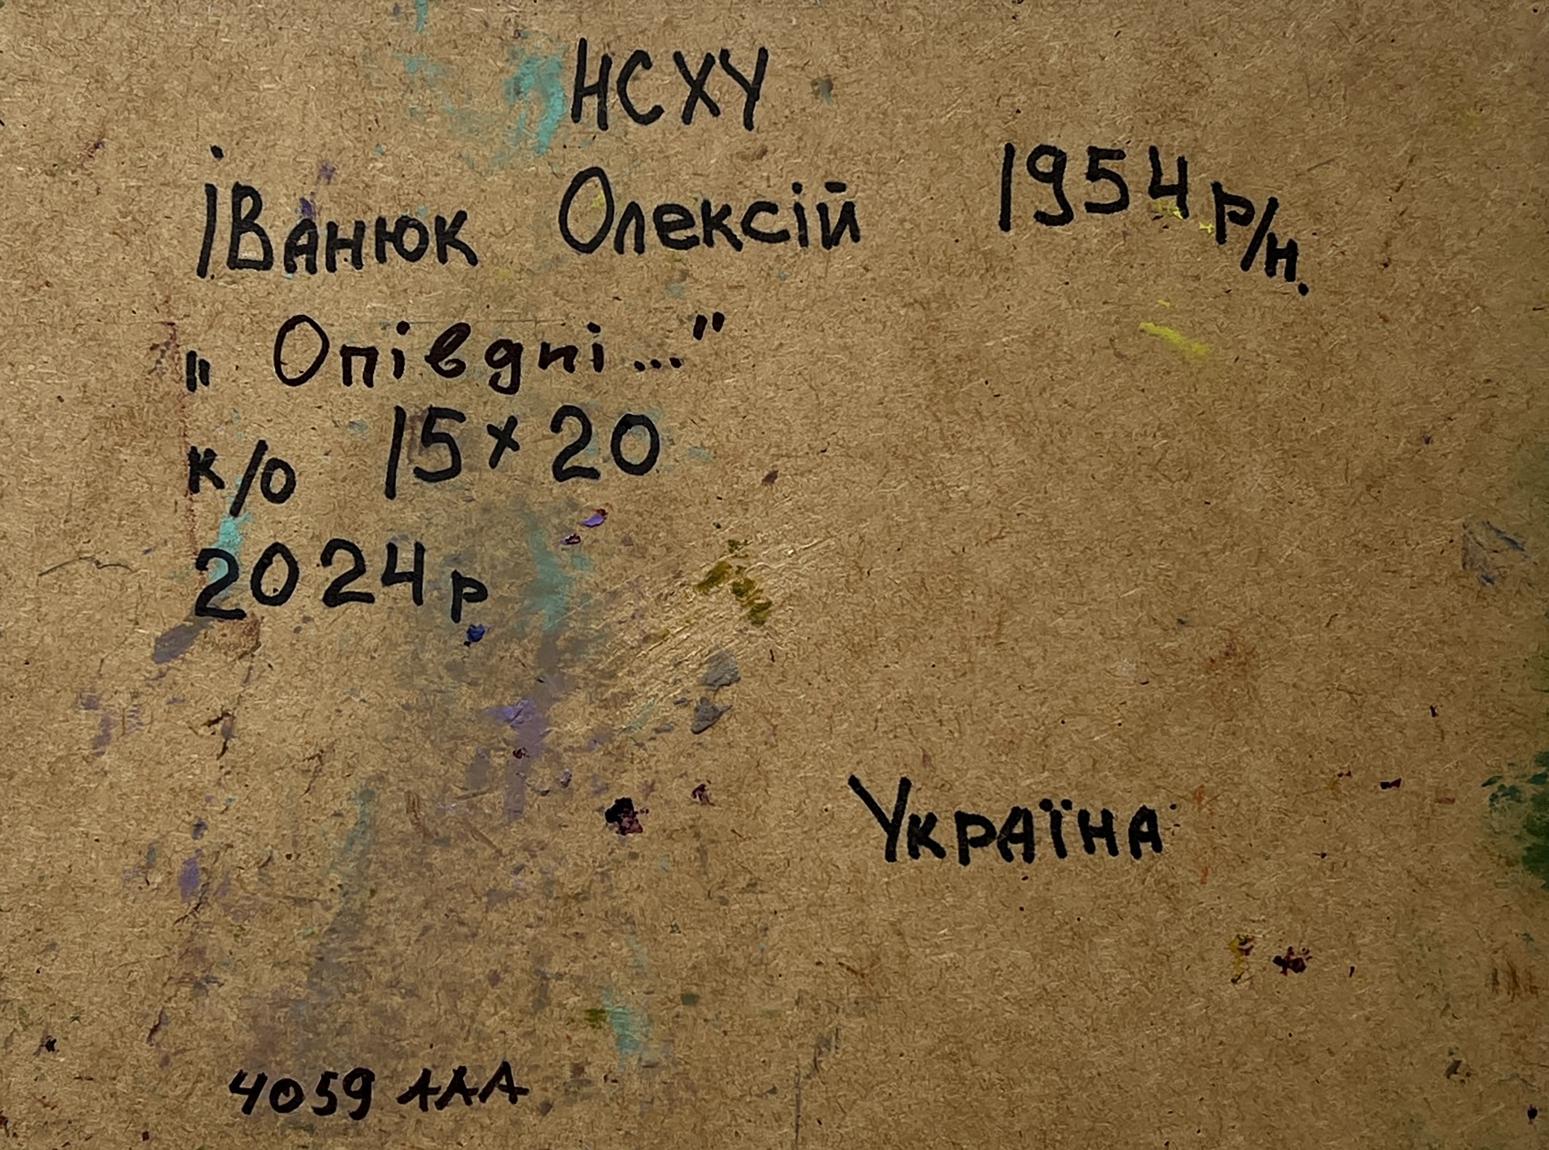 НСХУ
Іванюк Олексій 1954 р/н.
„ Опівдні..."
к/о 15×20
2024 р
Україна
4059 ААА